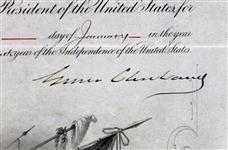 President of the United States, for
day of January in the year
year of the Independence of the United States.